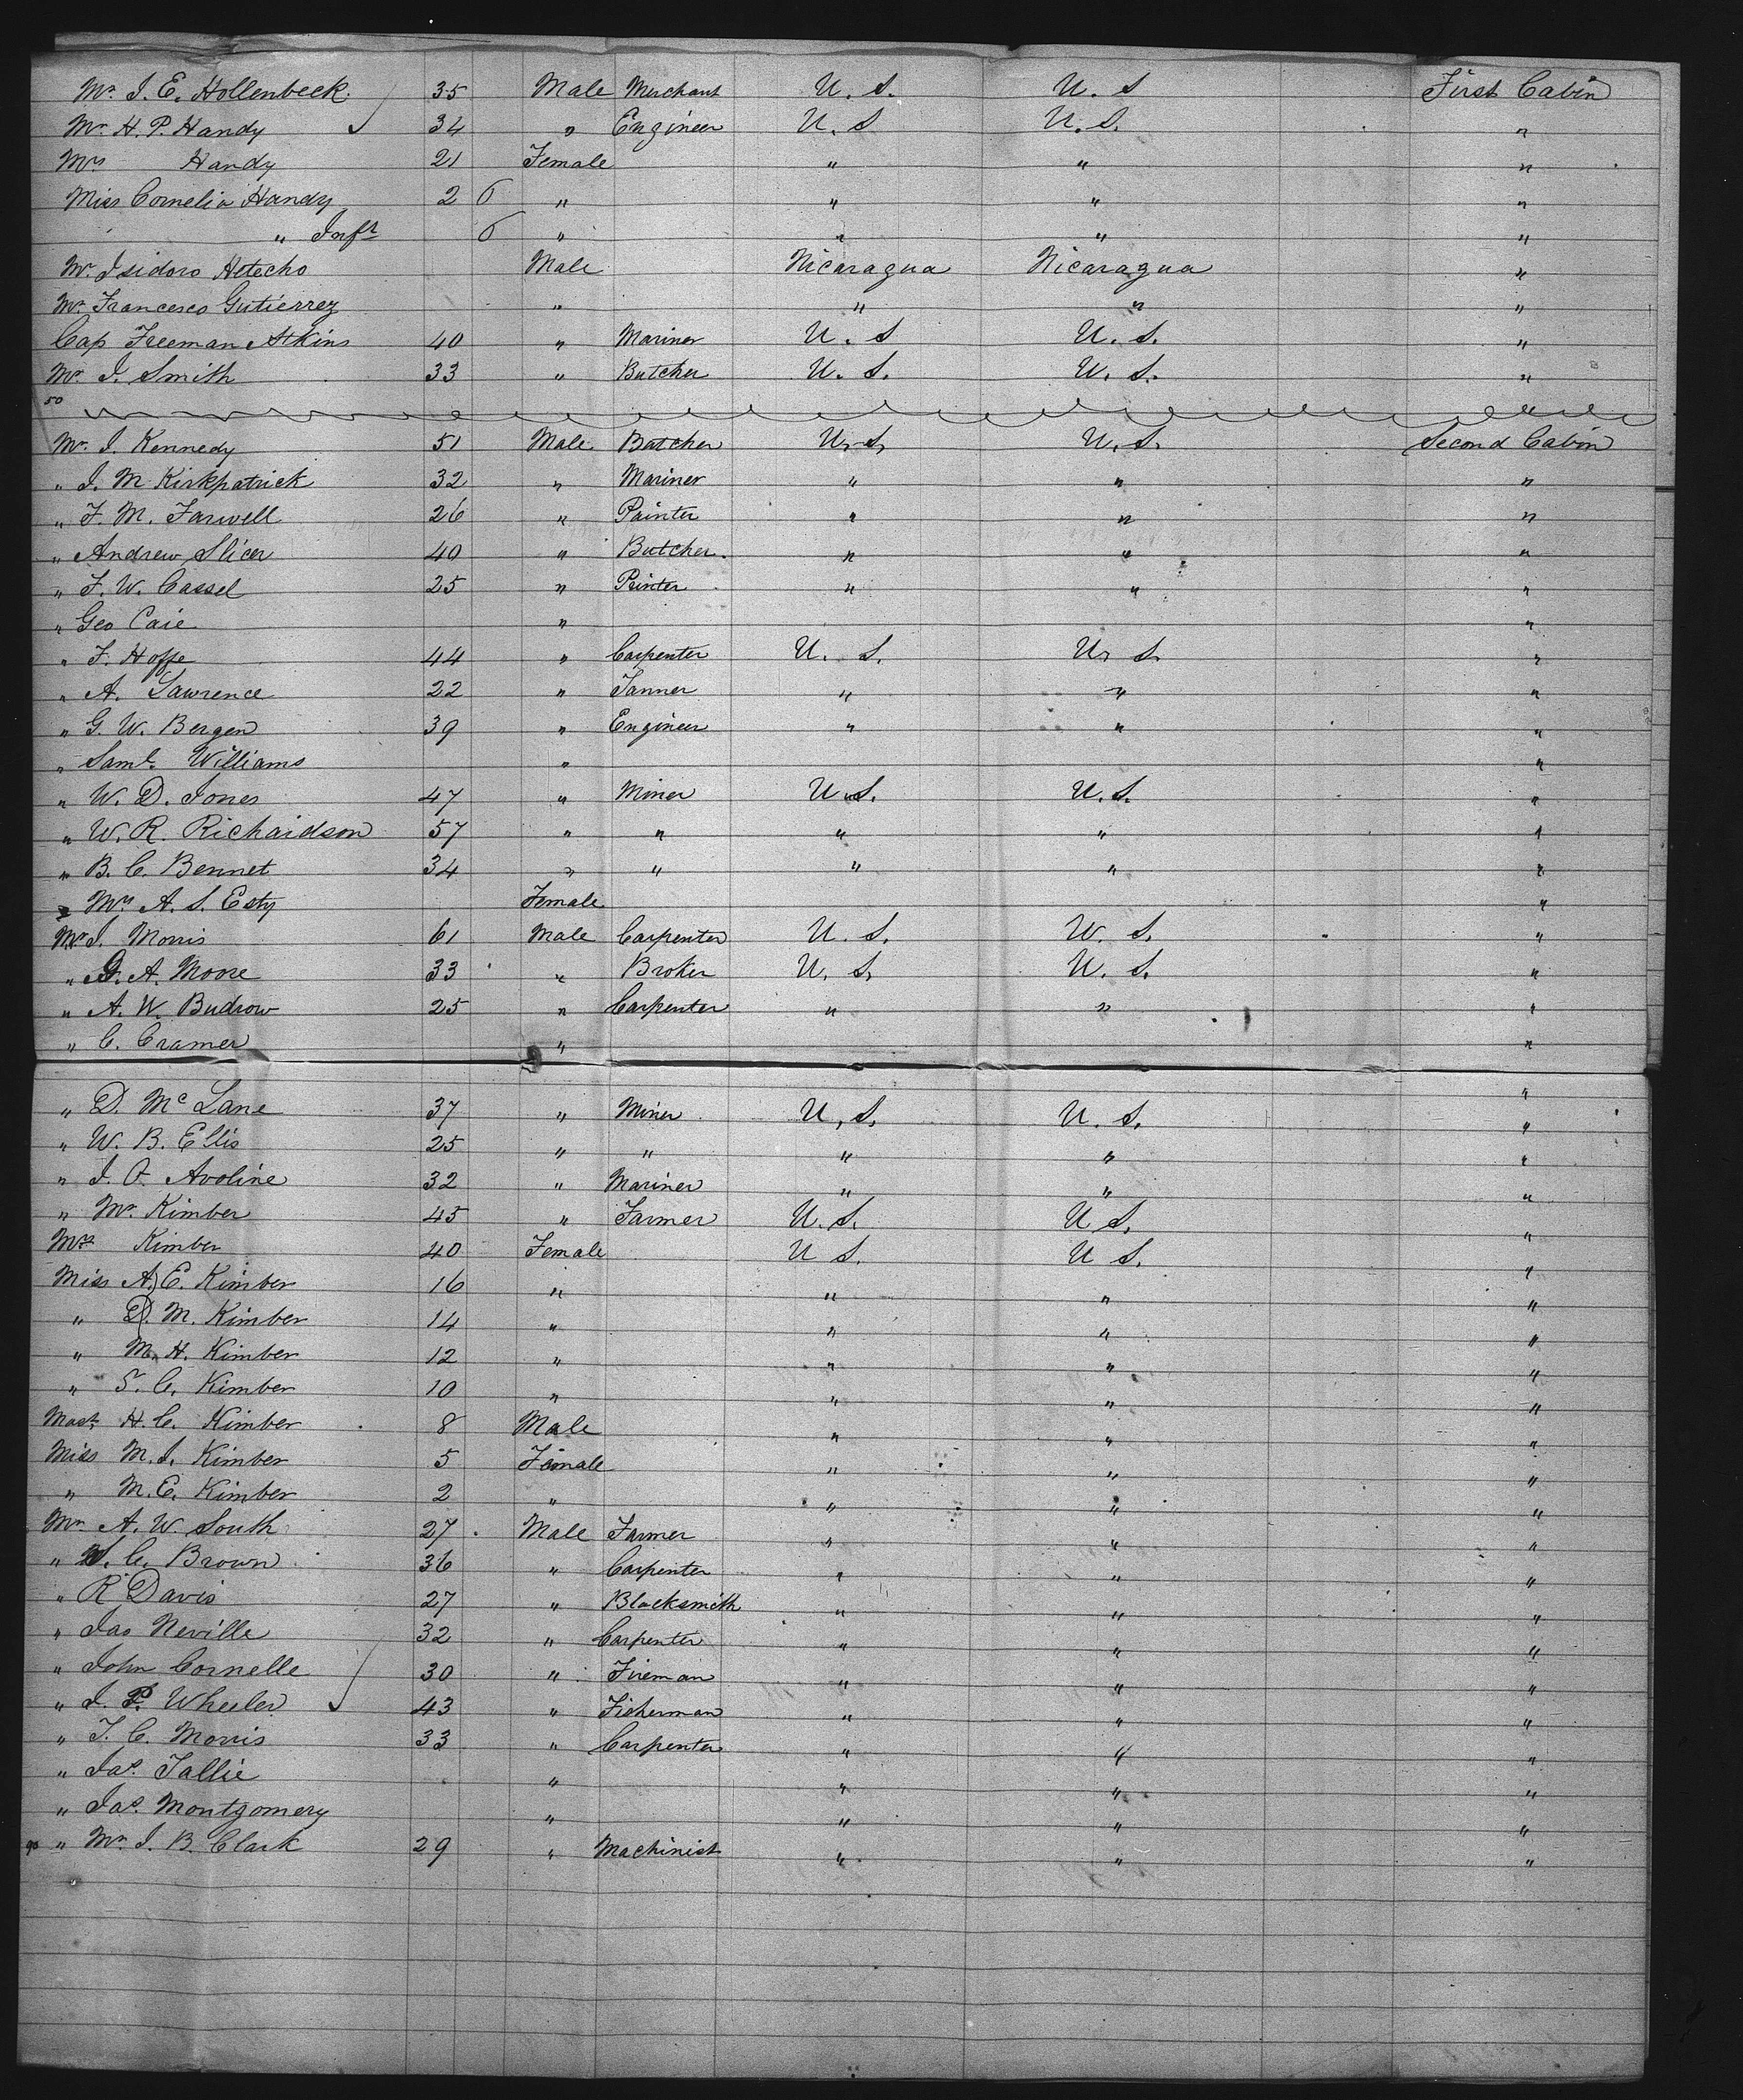 Mr. I. E. Hollenbeck. 35 Male Merchant U. S. U. S First Cabin
Mr. H. P. Handy 34 " Engineer U. S U. S. "
Mrs Handy 21 Female " " "
Miss Cornelia Handy 2 6 " " " "
" Inft 6 " " " "
Mr. Isidoro Male Nicaragua Nicaragua "
Mr. Francesco Gutierrez " " " "
Cap Freeman Atkins 40 " Mariner U. S U. S. "
Mr. I. Smith 33 " Butcher U. S. U. S. "
50 "
Mr. I. Kennedy 51 Male Butcher U. S. U. S. Second Cabin
" I. M Kirkpatrick 32 " Mariner " " "
" F. M. Farwell 26 " Painter " " "
" Andrew Slicer 40 " Butcher. " " "
" F. W. Cassel 25 " Printer " " "
" Geo Caie " "
" F. Hoffe 44 " Carpenter U. S. U. S. "
" A. Lawrence 22 " Tanner " " "
" G. W. Bergen 39 " Engineer " " "
" Saml. Williams " "
" W. D. Jones 47 " Miner U. S. U. S. "
" W. R. Richardson 57 " " " " "
" B. C. Bennet 34 " " " " "
" Mrs A. S. Esty Female "
Mr. I. Morris 61 Male Carpenter U. S. U. S. "
" A. Moore 33 " Broker U. S. U. S. "
" A. W. Budrow 25 " Carpenter " " "
" C. Cramer " "
" D. Mc Lane 37 " Miner U. S. U. S. "
" W. B. Ellis 25 " " " " "
" I. O. Avoline 32 " Mariner " " "
" Mr. Kimber 45 " Farmer U. S. U S. "
Mrs. Kimber 40 Female U S. U S. "
Miss A. E. Kimber 16 " " " "
" D. M. Kimber 14 " " " "
" M. H. Kimber 12 " " " "
" S. C. Kimber 10 " " " "
Mast. H. C. Kimber 8 Male " " "
Miss M. I. Kimber 5 Female " " "
" M. E. Kimber 2 " " " "
Mr. A. W. South 27 Male Farmer " " "
" C. Brown 36 " Carpenter " " "
" R Davis 27 " Blacksmith " " "
" Jas Neville 32 " Carpenter " " "
" John Cornelle 30 " Fireman " " "
" I. P. Wheeler 43 " Fisherman " " "
" T. C. Morris 33 " Carpenter " " "
" Jas. Tallie " " " "
" Jas. Montgomery " " " "
90 " Mr. I. B. Clark 29 " Machinist " " "